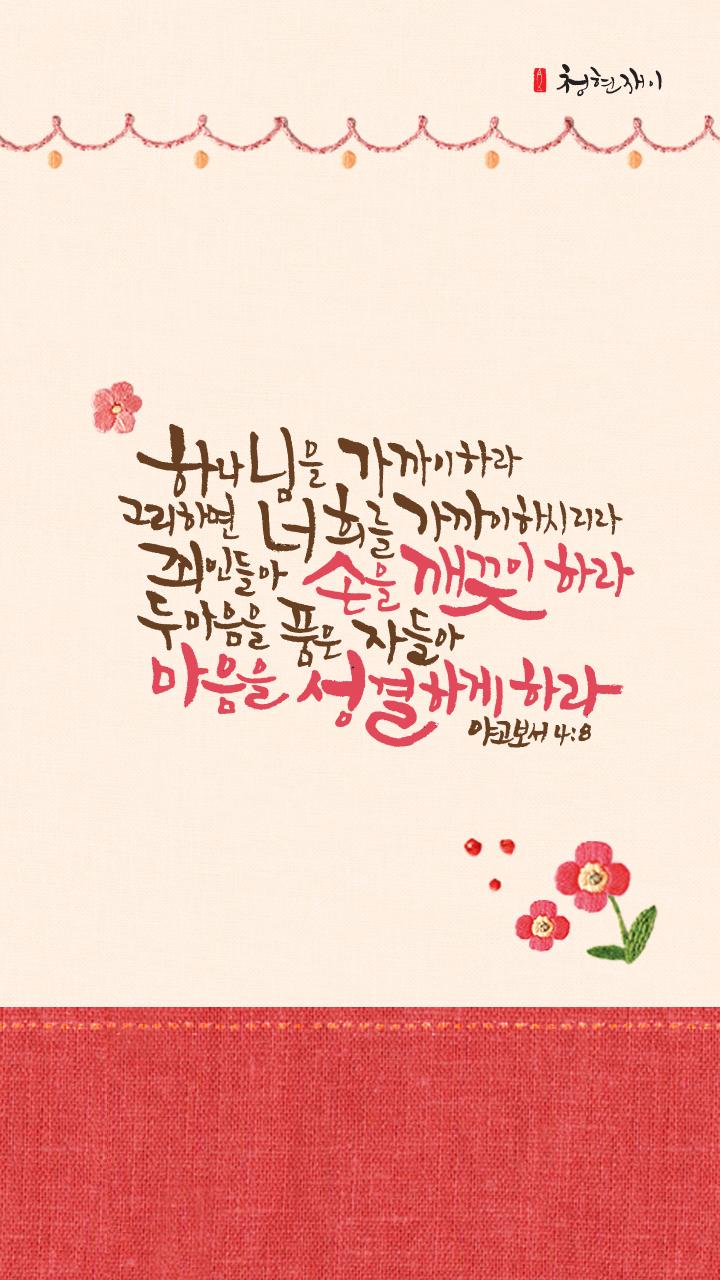 청현재이
하나님을 가까이하라
그리하면 너희를 가까이하시리라
죄인들아 손을 깨끗이 하라
두 마음을 품은 자들아
마음을 성결하게 하라
야고보서 4:8